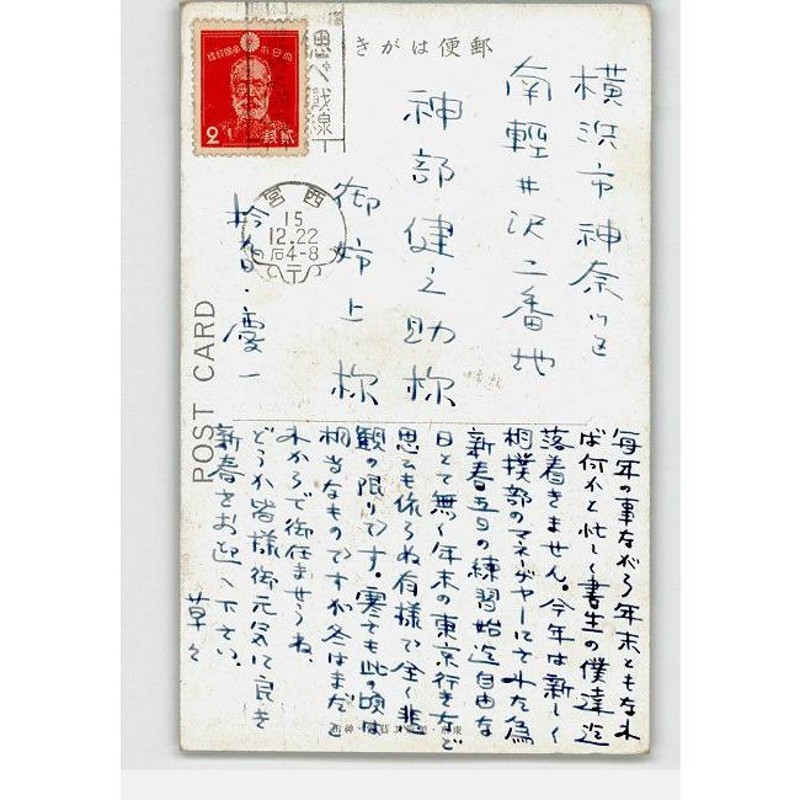 郵便はがき
横浜市神奈川区
南軽井沢二番地
神部健之助様
御姉上様
慶一
大日本帝国郵便
2
弐銭
思へ戦線
西宮
15
12.22
后4-8
POST CARD
毎年の事ながら年末ともなれ
ば何かと忙しく書生の僕達迄
落着きません。今年は新しく
相撲部のマネーヂャーにされた為
新春五日の練習始迄自由な
日とて無く年末の東京行きなど
思ひも依らぬ有様で全く悲
観の限りです。寒さも此の頃は
相当なものですが冬はまだこ
れからで御在ませうね、
どうか皆様御元気に良き
新春をお迎へ下さい。
草々